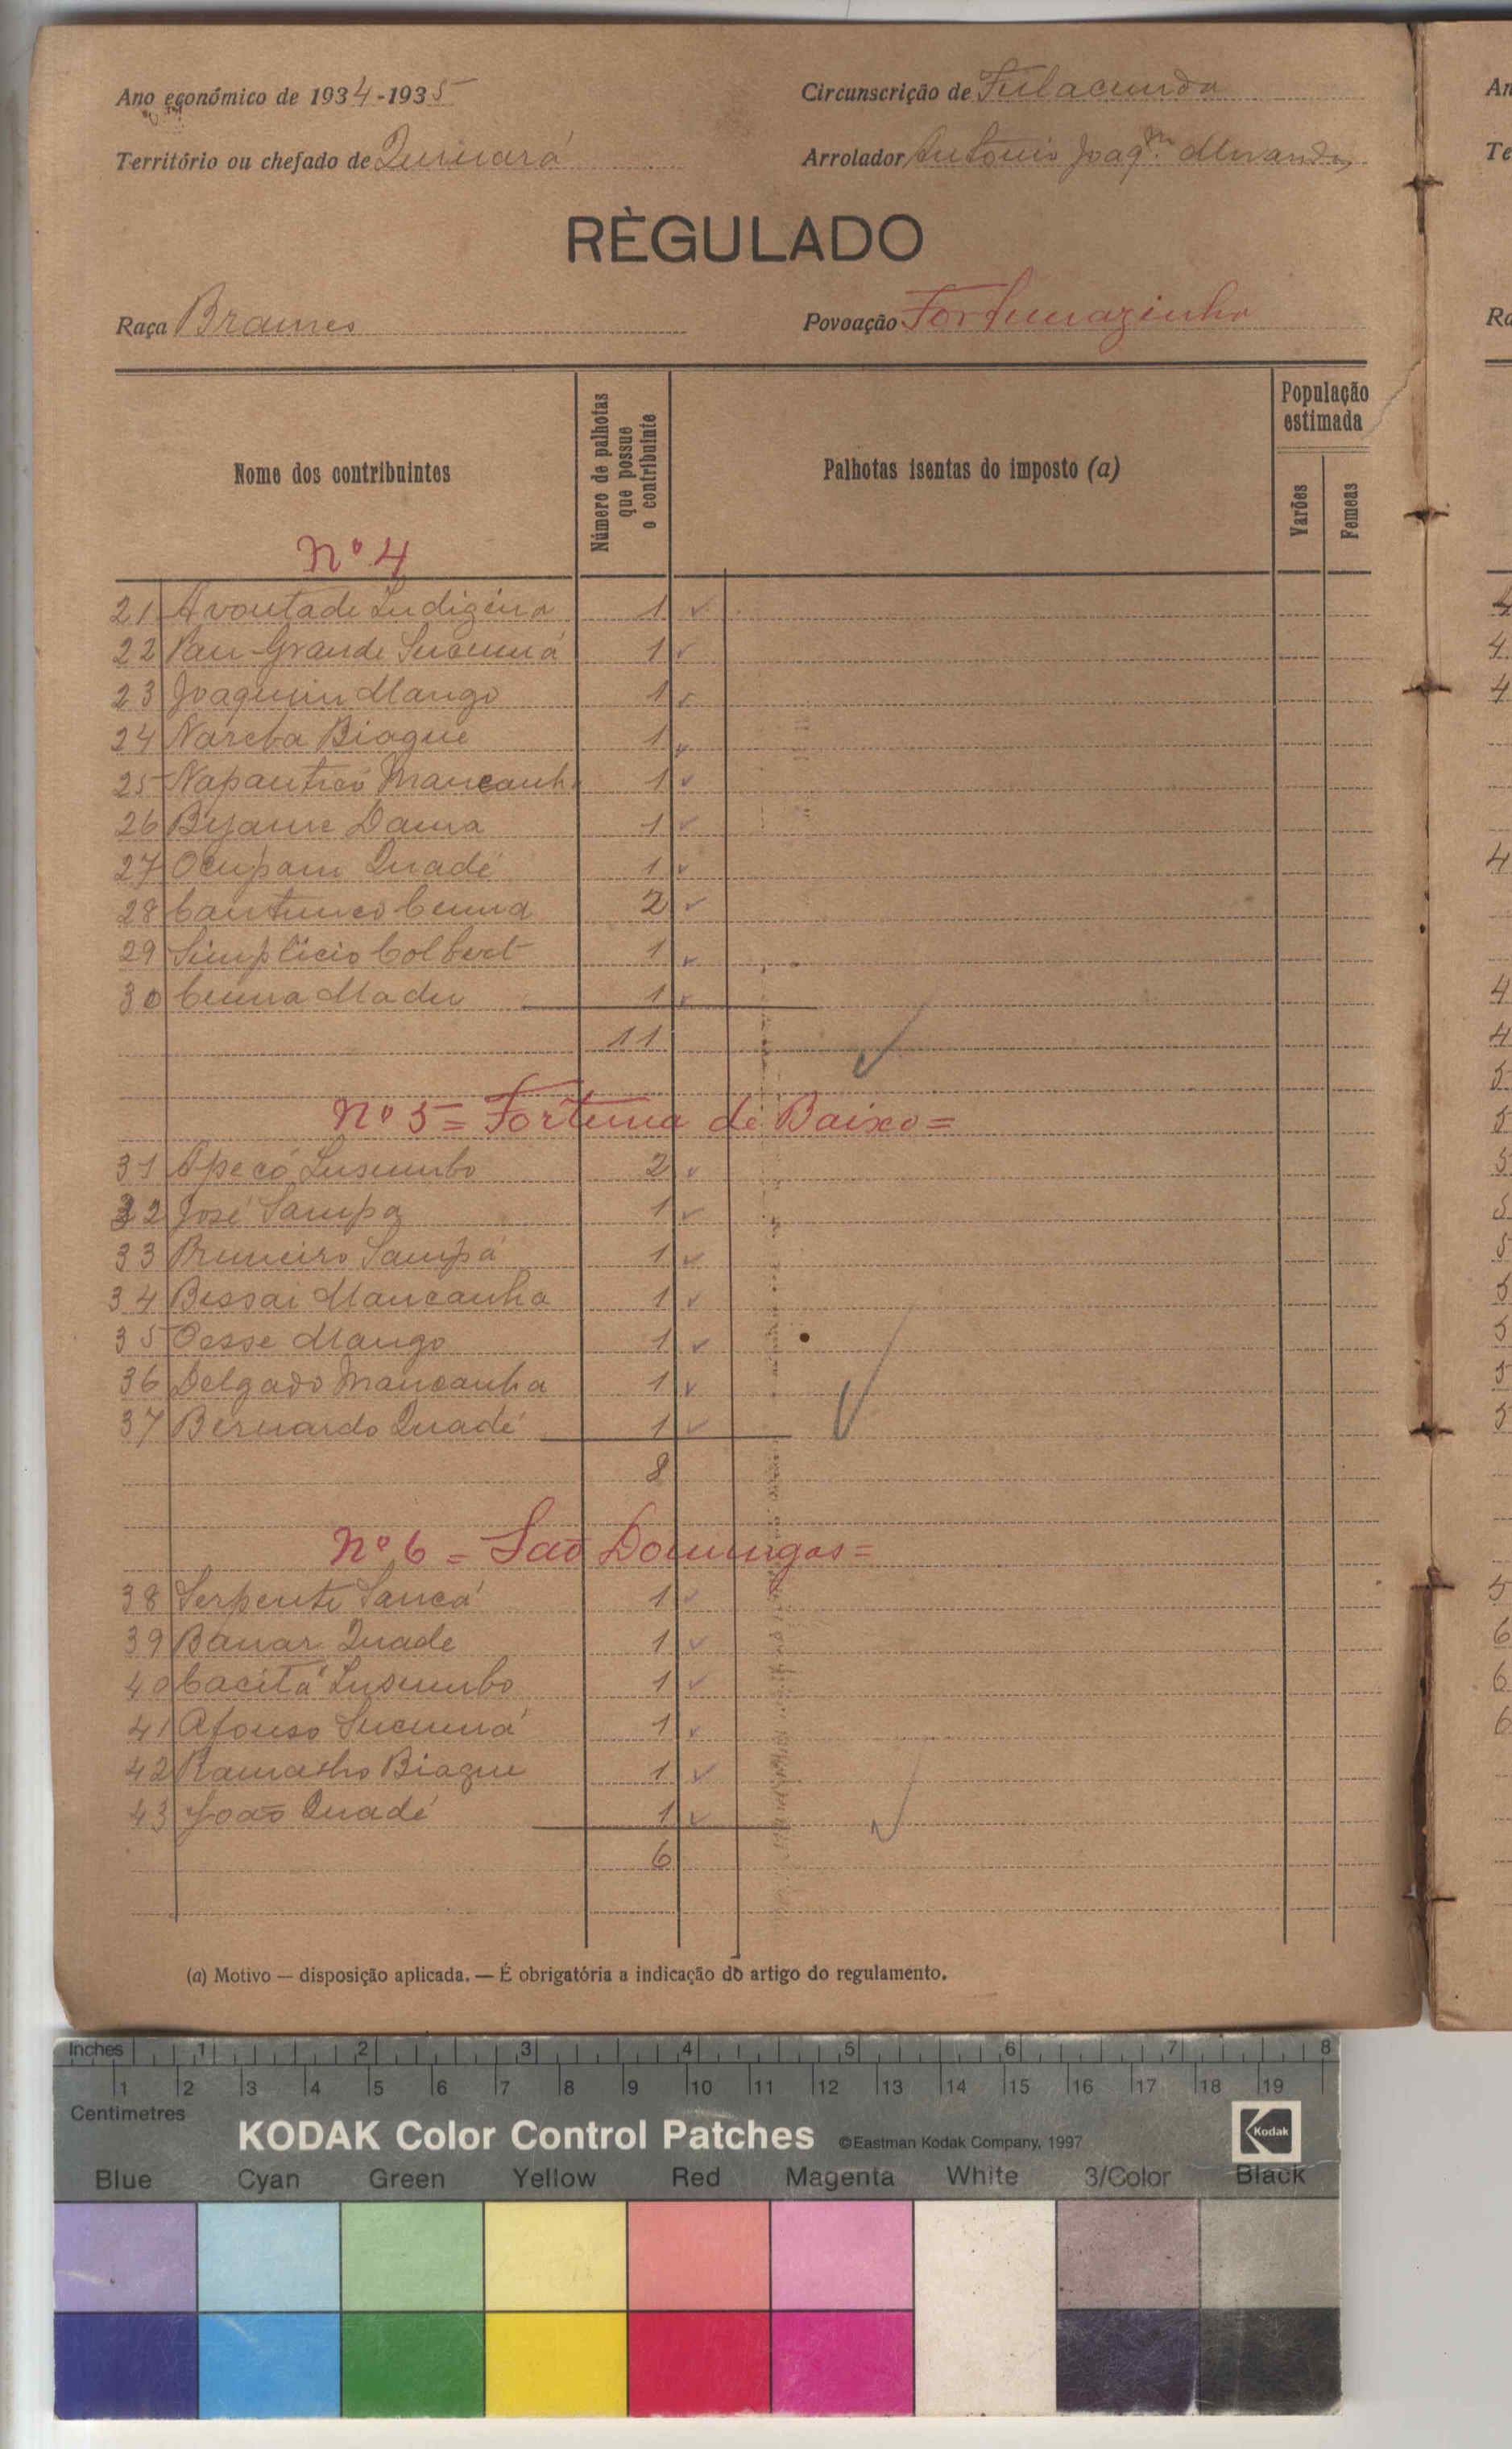 Ano económico de 1934-1935
Circunscrição de Fulacunda
Território ou chefado de Quinará
Arrolador António Joaqm.
RÈGULADO
Raça Brames
Povoação Fortunazinho
Nome dos contribuintes
Número de palhotas que possue o contribuinte
Palhotas isentas do imposto (a)
População estimada
Varões
Femeas
Nº 4
21 Avontade Indigina 1
22 Pau Grande Sucumá 1
23 Joaquim Mango 1
24 Nareba Biague 1
25 Mancanh 1
26 Dama 1
27 Ocupam Quadé 1
28 Cunna 2
29 Simplicio Colbert 1
30 Cunna Madu 1
11
Nº 5 = Fortuna de Baixo =
31 Apecó Lusumbo 2
32 José Sampa 1
33 Primeiro Sampá 1
34 Bissai Mancanha 1
35 Osse Mango 1
36 Delgado Mancanha 1
37 Bernardo Quadé 1
8
Nº 6 = São Domingos =
38 Serpente Sancá 1
39 Banar Quade 1
40 Cacitá Lusumbo 1
41 Afonso Sucumá 1
42 Ramalho Biague 1
43 João Quadé 1
6
(a) Motivo — disposição aplicada. — É obrigatória a indicação do artigo do regulamento.
Inches 1 2 3 4 5 6 7 8
1 2 3 4 5 6 7 8 9 10 11 12 13 14 15 16 17 18 19
Centimetres
KODAK Color Control Patches ©Eastman Kodak Company, 1997 Kodak
Blue Cyan Green Yellow Red Magenta White 3/Color Black